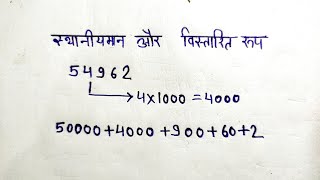 स्थानीयमान और विस्तारित रूप
54962
4×1000=4000
50000+4000+900+60+2